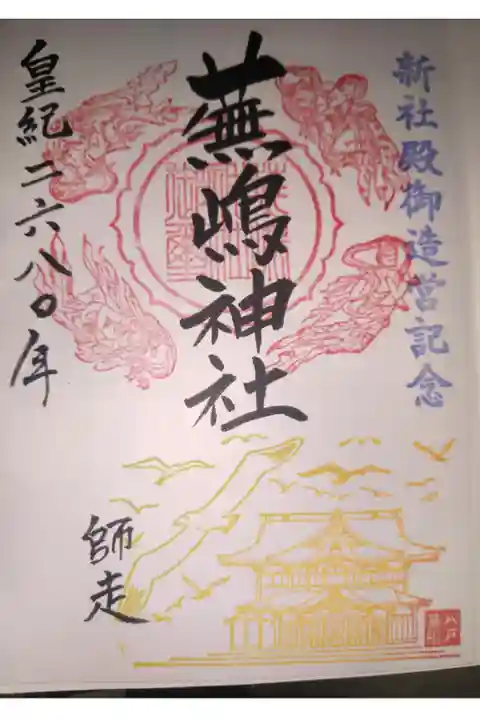 新社殿御造営記念
蕪嶋神社
皇紀二六八〇年
師走
八戸